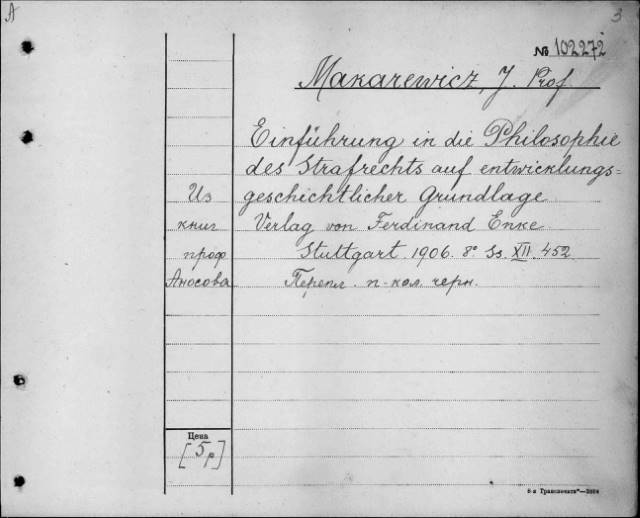 А
3
№ 102272
Makarewicz, J. Prof.
Einführung in die Philosophie
des Strafrechts auf entwicklungs=
geschichtlicher Grundlage.
Verlag von Ferdinand Enke
Stuttgart. 1906. 8º Ss. XII. 452.
Перепл. п-кол. черн.
Из
книг
проф
Аносова
Цена
[5р]